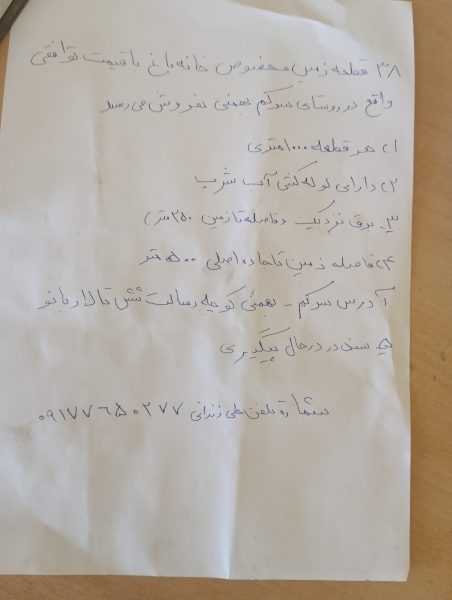 ۳۸ قطعه زمین مخصوص خانه باغ با قیمت توافقی
واقع در روستای سرکم بهمنی بفروش می رسد
۱) هر قطعه ۱۰۰۰ متری
۲) دارای لوله کشی آب شرب
۳- برق نزدیک و فاصله تا زمین ۲۵۰ متر)
۴) فاصله زمین تا جاده اصلی ۵۰۰ متر
آدرس سرکم - بهمنی کوچه رسالت شش تالار بانو
۵ سند در درحال پیگیری
شماره تلفن علی زندانی ۰۹۱۷۷۶۵۰۲۷۷